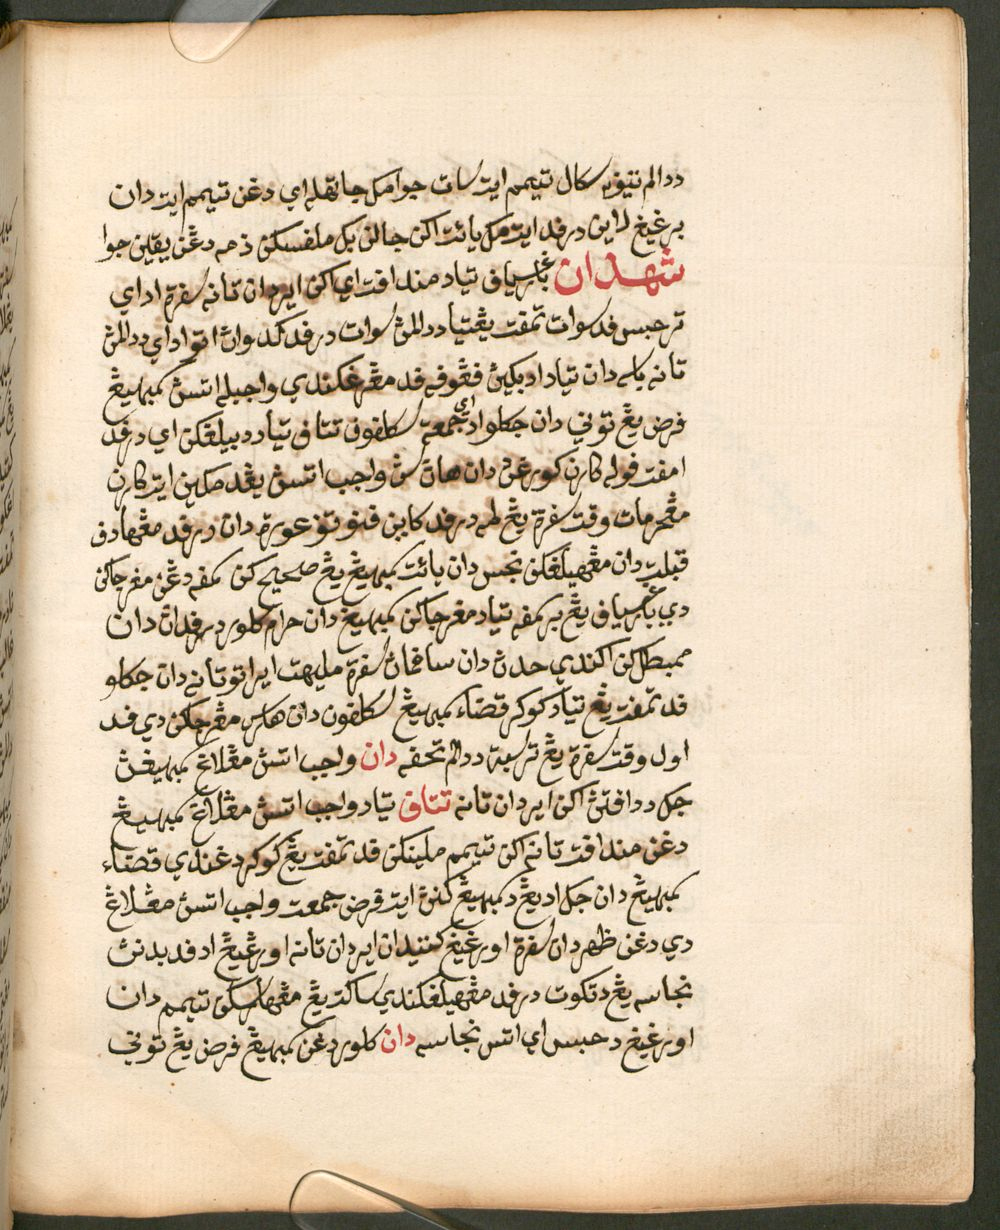 ددالم نتيڤڽ سكال تيمم ايت سات جوا مك جاتهله اي دڠن تيمم ايت دان
برغيڠ لاين درفد ايت مك يائت اكن جالن بك ملفسكن ذمه دڠن يقين جوا
شهدان بارڠسياف تياد مندافت اي اكن اير دان تانه سفرة ادا اي
ترحبس فد سوات تمفت يڠتياد ددالمڽ سوات درفد كدوان اتو ادا اي ددالمڽ
تانه باسه دان تياد ادا بكيڽ فڠوفه فد مڠرڠكندي واجبله اتسڽ سمبهيڠ
فرض يڠ توني دان جكلو اداي جمعة سكلفون تتاف تياد دبيلڠكن اي درفد
امفت فوله كارن كورڠڽ دان هاڽ سڽ واجب اتسڽ يڠدمكين ايت كارن
مڠحرمات وقت سفرة يڠ لمه درفد كاين فنوتوفڽ عورة دان درفد مڠهادف
قبلت دان مڠهيلڠكن نجس دان يائت سمبهيڠ يڠ صحيح كن كمفه دڠن مڠرجاكن
دي بارڠسياف يڠ بركمفه تياد مڠرجاكن سمبهيڠ دان حرام كلور درفدان دان
ممبطلكن اكندي حدث دان سافمان سفرة مليهت اير اتو تانه دان جكلو
فد تمفت يڠ تياد كوكر قضاء سمبهيڠ سكلفون دان هارس مڠرجاكن دي فد
اول وقت سفرة يڠ ترسبت ددالم تحفه دان واجب اتسڽ مڠلاڠ سمبهيڠڽ
جك ددافتڽ اكن اير دان تانه تتاف تياد واجب اتسڽ مڠلاڠ سمبهيڠ
دڠن مندافت تانه اكن تيمم ملينكن فد تمفت يڠ كوكر دڠندي قضاء
سمبهيڠ دان جك ادا يڠ دسمبهيڠكنڽ ايت فرض جمعت واجب اتسڽ مڠلاڠ
دي دڠن ظهر دان سفرة اورڠيڠ كتيدان اير دان تانه اورڠيڠ اد فد بدنڽ
نجاسه يڠ دتاكوت درفد مڠهيلڠكندي ساكت يڠ مڠهارسكن تيمم دان
اورڠيڠ دحبس اي اتس نجاسه دان كلور دڠن سمبهيڠ فرض يڠ توني